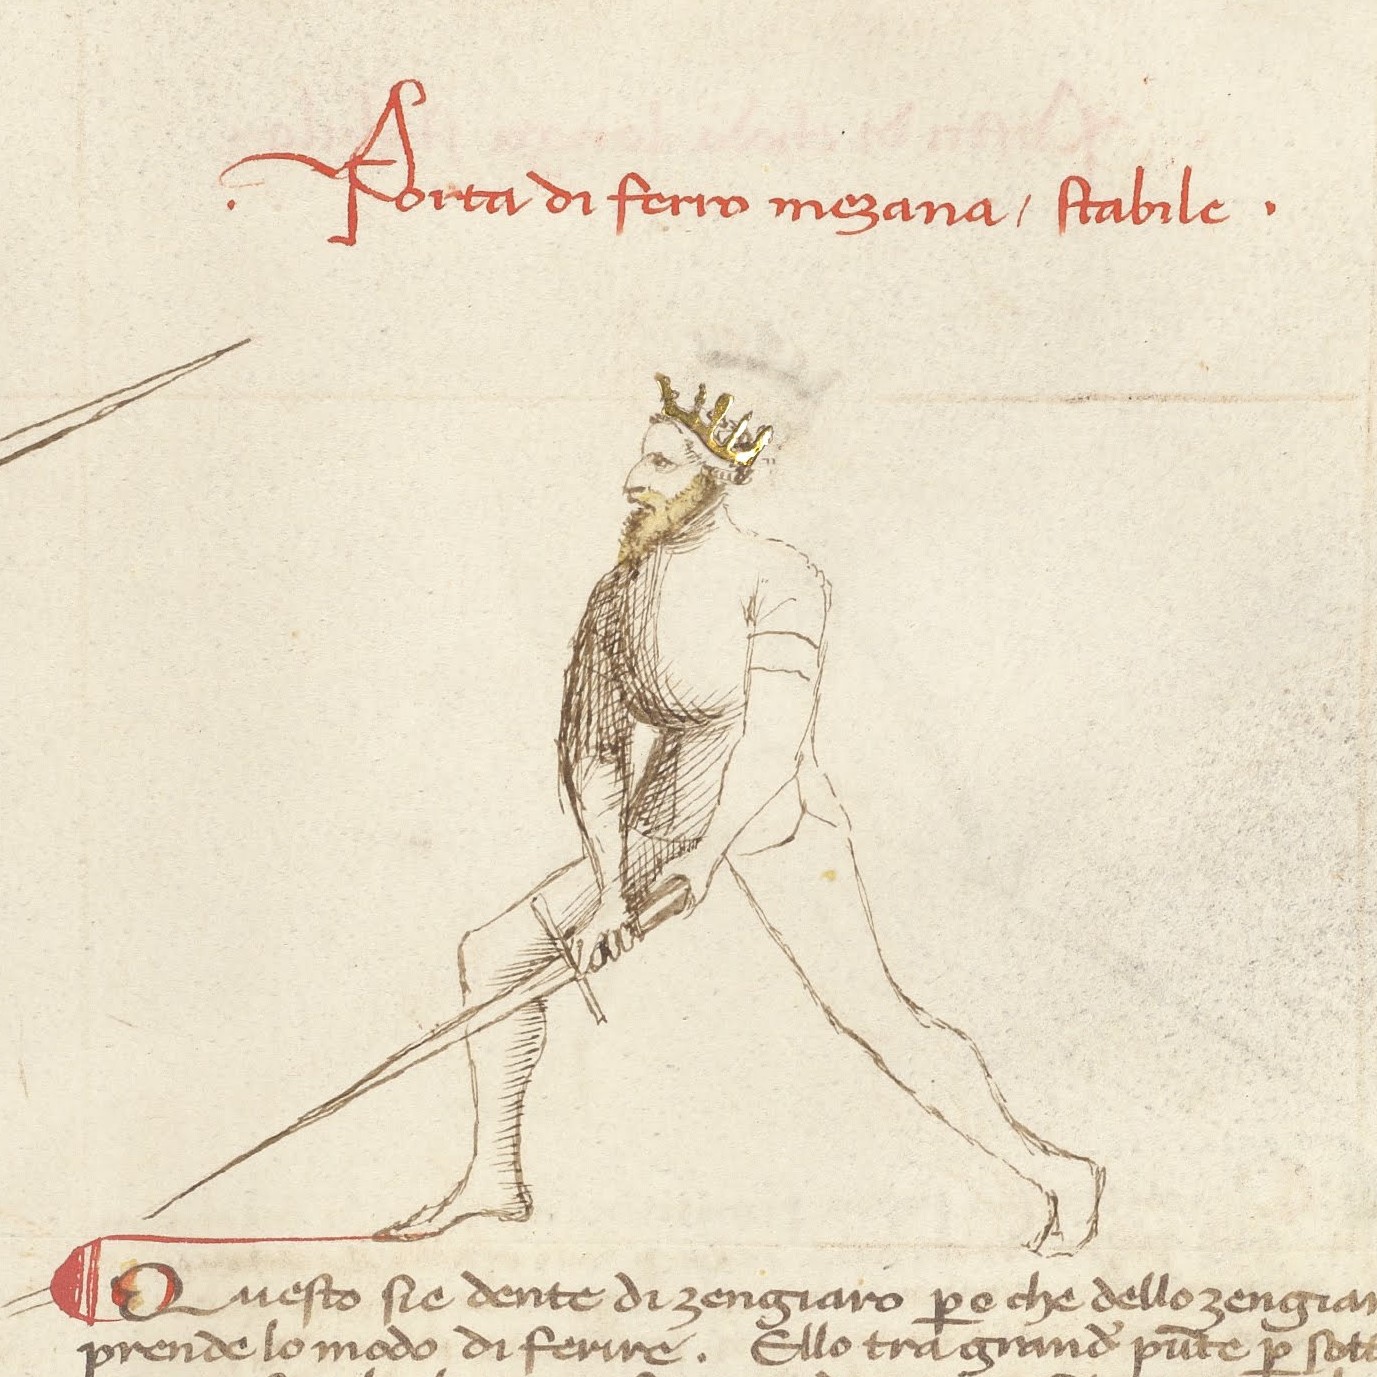 Porta di ferro mezana / stabile .
Questo sie dente di zengiaro p̱o che dello zengiar
prende lo modo di ferire . Ello tra grand' pūte p̱ sott